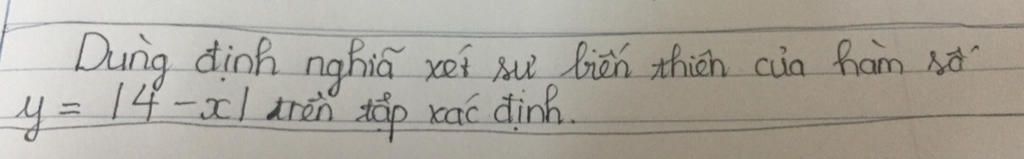 Dùng định nghiã xét sự biến thiên của hàm số
y = |4 - x| trên tập xác định.